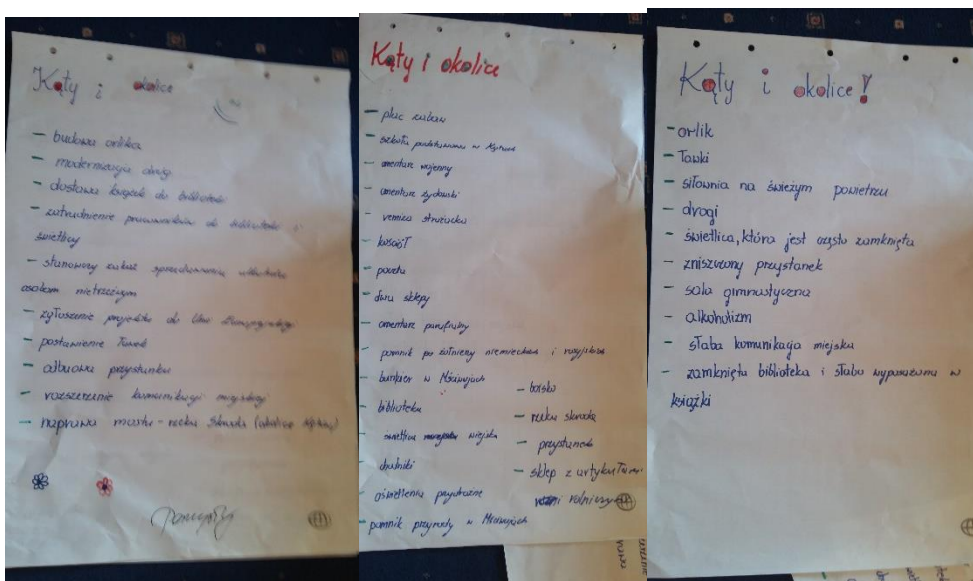 Kąty i okolice
- budowa orlika
- modernizacja dróg
- dostawa książek do biblioteki
- zatrudnienie pracowników do biblioteki i
świetlicy
- stanowczy zakaz sprzedawania alkoholu
osobom nietrzeźwym
- zgłoszenie projektu do Unii Europejskiej
- postawienie ławek
- odbudowa przystanku
- rozszerzenie komunikacji miejskiej
- naprawa mostu - rzeka Skroda (okolice)
Kąty i okolice
- plac zabaw
- szkoła podstawowa w Kątach
- cmentarz wojenny
- cmentarz żydowski
- remiza strażacka
- kościół
- poczta
- dwa sklepy
- cmentarz parafialny
- pomnik po żołnierzy niemieckim i rosyjskim
- bunkier w Mściwojach
- biblioteka
- świetlica wiejska
- chodniki
- oświetlenia przydrożne
- pomnik przyrody w Mściwojach
- boisko
- rzeka skroda
- przystanek
- sklep z artykułami
rolniczymi
Kąty i okolice!
- orlik
- ławki
- siłownia na świeżym powietrzu
- drogi
- świetlica, która jest często zamknięta
- zniszczony przystanek
- sala gimnastyczna
- alkoholizm
- słaba komunikacja miejska
- zamknięta biblioteka i słabo wyposażona w
książki